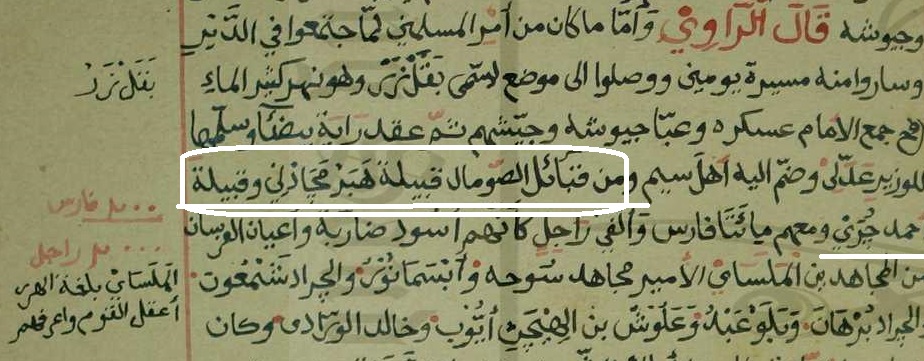 وجيوشه قال الراوي وأما ما كان من أمر المسلمين لما اجتمعوا في الدير
وساروا منه مسيرة يومين ووصلوا الى موضع يسمى بقل زر وهو نهر كثير الماء
جمع الامام عسكره وعبا جيوشه وجيشهم ثم عقد راية بيضا وسلمها
للوزير عدلى وضم اليه أهل سيم ومن قبائل الصومال قبيلة هبر مجادلي وقبيلة
حمد جري ومعهم مائتا فارس وألفي راجل كأنهم أسود ضارية وأعيان الفرسان
من المجاهد بن الملساي الأمير مجاهد سوحه وأبسمانور والجراد شمعون
الجراد برهان وبلو عبد وعلوش بن الهيجن أيوب وخالد الورادى وكان
بقل زر
فارس
راجل
الملساي بلغة الهرر
أعقل القوم واعرفهم